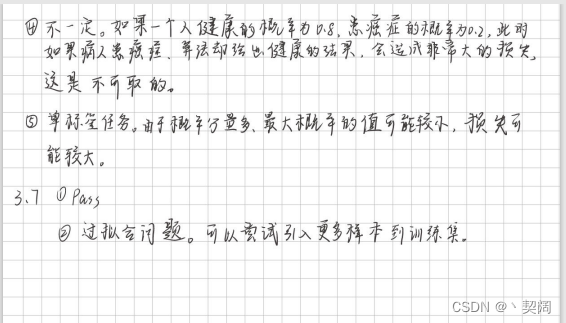 ④ 不一定。如果一个人健康的概率为0.8,患癌症的概率为0.2,此时
如果病人患癌症,算法却给出健康的结果,会造成非常大的损失,
这是不可取的。
⑤ 单标签任务。由于概率分量多、最大概率的值可能较小,损失可
能较大。
3.7 ① Pass
② 过拟合问题。可以尝试引入更多样本到训练集。
CSDN @丶契阔